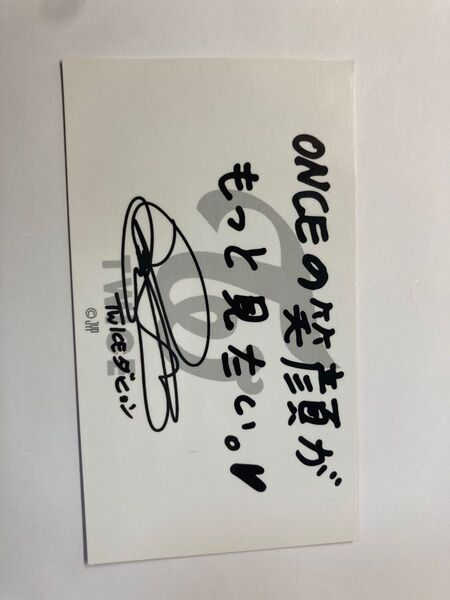 ONCEの笑顔が
もっと見たい。♥
TWICE
TWICEダヒョン
©JYP